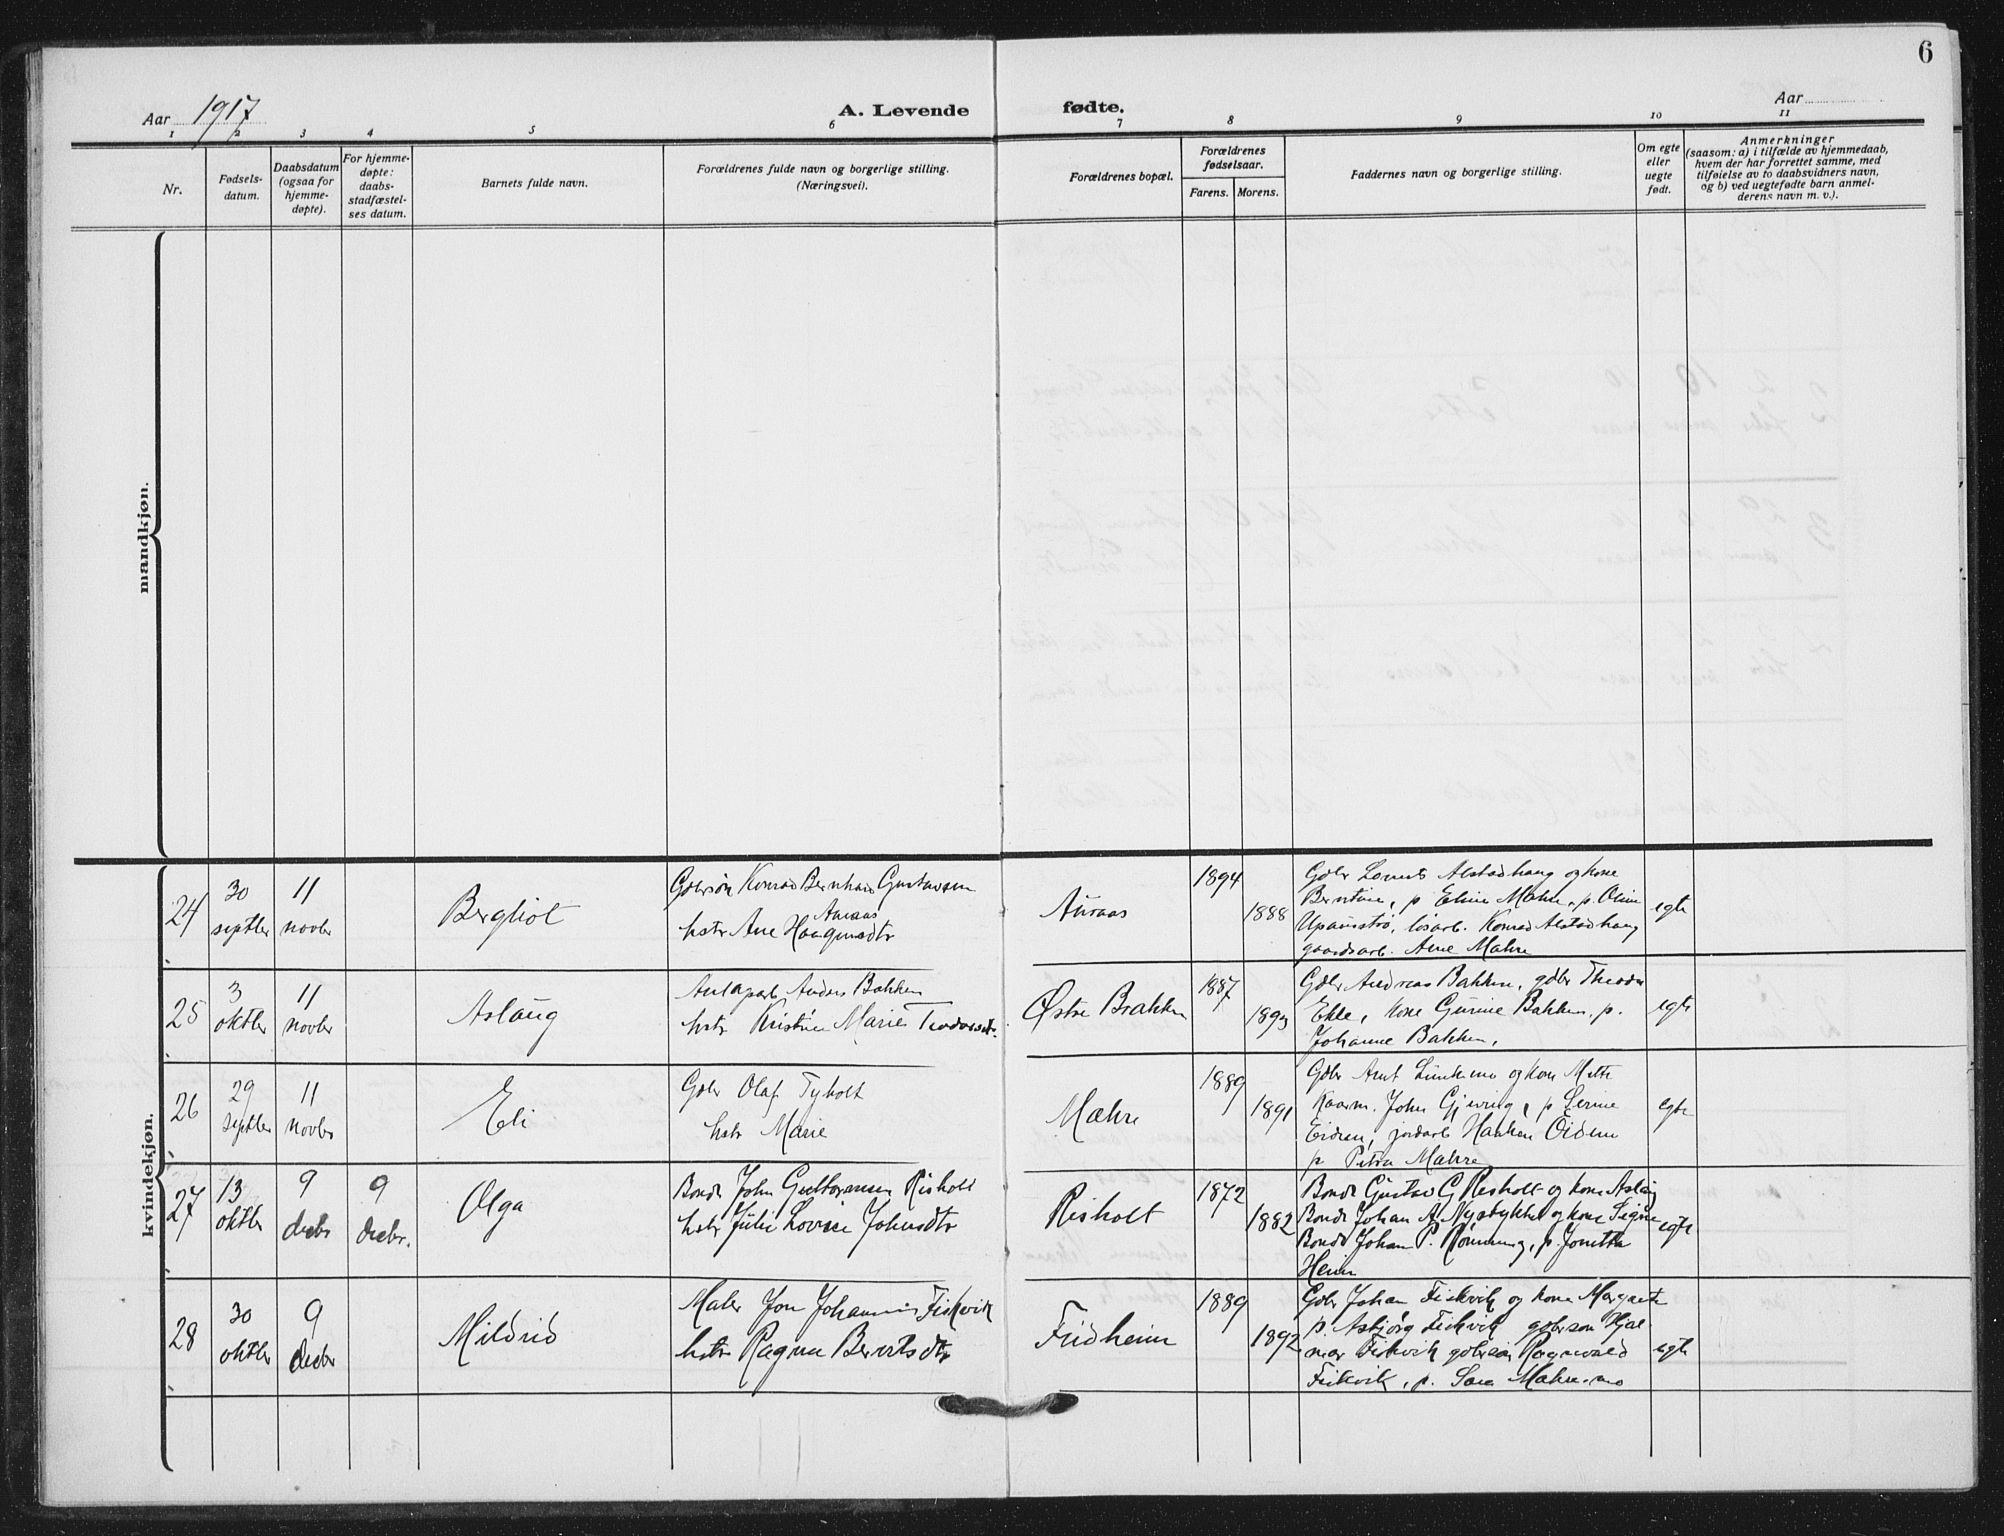 6
Aar 1917
A. Levende
fødte.
Aar
1 2 3 4 5 6 7 8 9 10 11
Nr.
Fødsels-
datum.
Daabsdatum
(ogsaa for
hjemme-
døpte).
For hjemme-
døpte:
daabs-
stadfæstel-
ses datum.
Barnets fulde navn.
Forældrenes fulde navn og borgerlige stilling.
(Næringsvei).
Forældrenes bopæl.
Forældrenes
fødselsaar.
Farens. Morens.
Faddernes navn og borgerlige stilling.
Om egte
eller
uegte
født.
Anmerkninger
(saasom: a) i tilfælde av hjemmedaab,
hvem der har forrettet samme, med
tilføielse av to daabsvidners navn,
og b) ved uegtefødte barn anmel-
derens navn m. v.).
mandkjøn.
kvindekjøn.
24
30
septbr
11
novbr
Bergliot
Gbrsøn Konrad Bernhard Gustavsen
Auraas
hstr Ane Haagensdtr
Auraas
1894
1888
Gbr Alstadhaug og kone
Berntine, p. Eline Mæhre, p. Oline
løsarb. Konrad Alstadhaug
gaardsarb. Arne Mæhre
egte
25
3
oktbr
11
novbr
Aslaug
Anders Bakken
hstr Kristine Marie
Østre Brækken
1887
1893
Gbr Andreas Bakken, gbr Theodor
Ekle, kone Gurine Bakken, p.
Johanne Bakken.
egte
26
29
septbr
11
novbr
Eli
Gbr Olaf Tyholt
hstr Marie
Mæhre
1889
1891
Gbr Arnt og kone Mette
John p
jordarb Haakon
p Petra Mæhre
egte
27
13
oktbr
9
decbr
9
decbr.
Olga
Bonde John Guttormsen Risholt
hstr Julie Lovise Johnsdtr
Risholt
1872
1882
Bonde Gustav G Risholt og kone Aslaug
Bonde Johan A. og kone Signe
Bonde Johan P. Rønning, p. Jonetta
Heim
egte
28
30
oktbr
9
decbr
Mildrid
Maler Jon Johannes Fiskvik
hstr Ragna Berntsdtr
Fridheim
1889
1892
Gbr Johan Fiskvik og kone Margrete
p. Asbjørg Fiskvik gbrsøn Hjal-
mar Fiskvik gbrsøn Ragnvald
Fiskvik, p. Sara Mæhre
egte